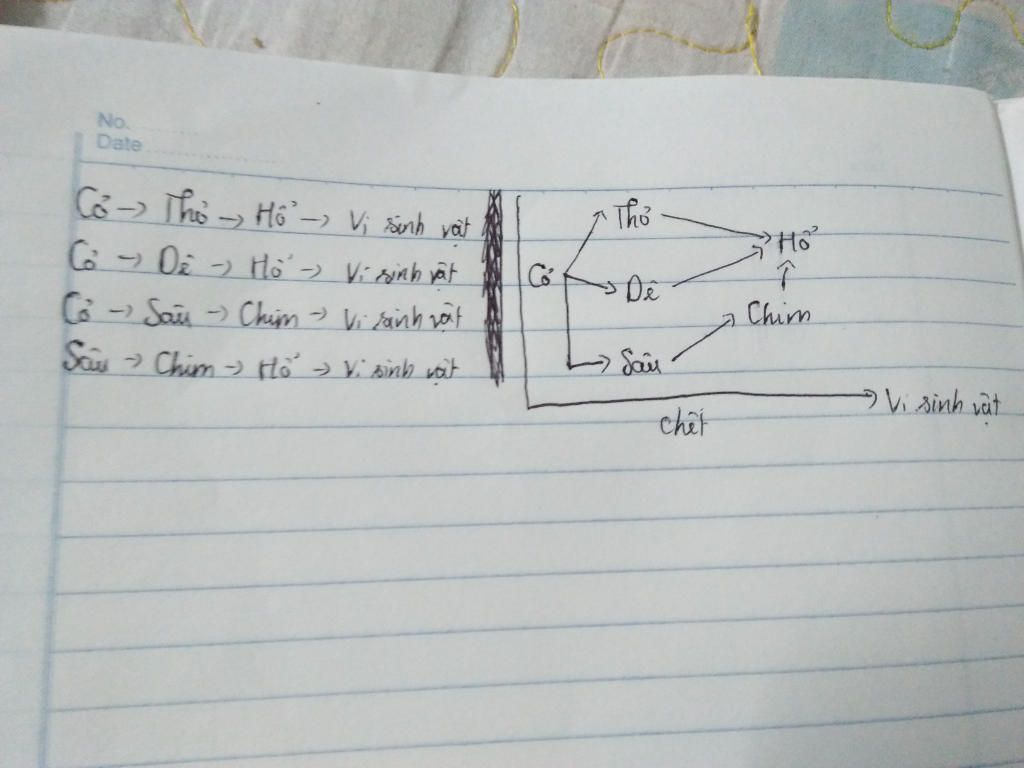 No.
Date
Cỏ → Thỏ → Hổ → Vi sinh vật
Cỏ → Dê → Hổ → Vi sinh vật
Cỏ → Sâu → Chim → Vi sinh vật
Sâu → Chim → Hổ → Vi sinh vật
Thỏ
Hổ
Cỏ
Dê
Chim
Sâu
Vi sinh vật
Chết